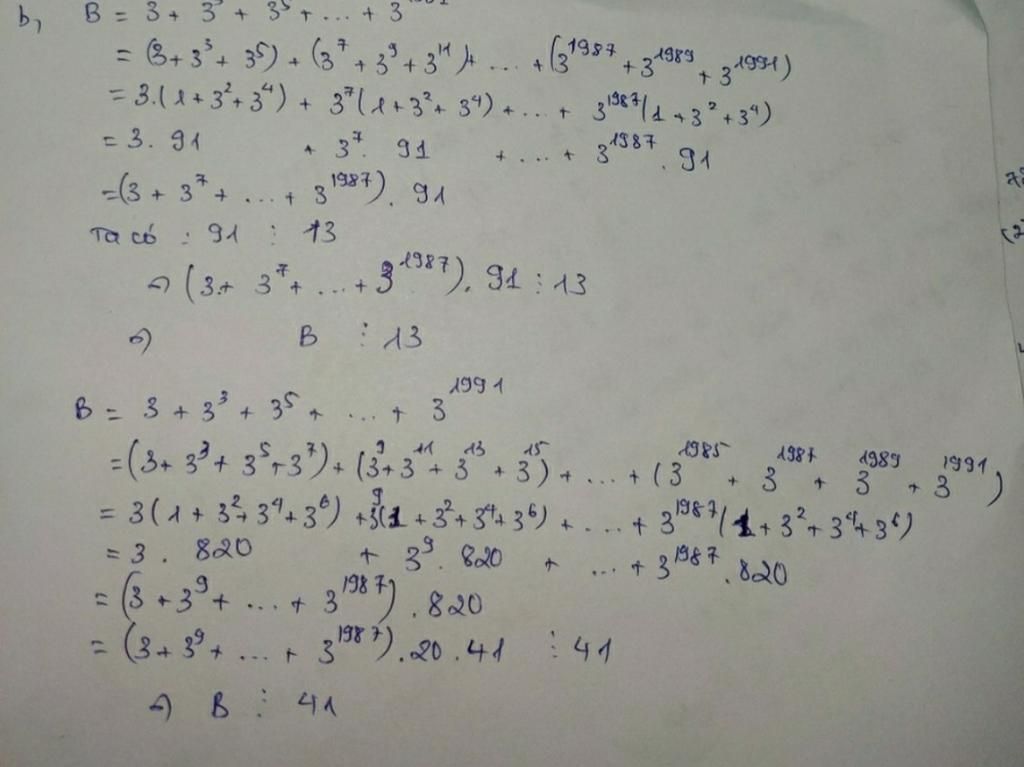 b, B = 3 + 3³ + 3⁵ + ... + 3¹⁹⁹¹
= (3 + 3³ + 3⁵) + (3⁷ + 3⁹ + 3¹¹) + ... + (3¹⁹⁸⁷ + 3¹⁹⁸⁹ + 3¹⁹⁹¹)
= 3.(1 + 3² + 3⁴) + 3⁷(1 + 3² + 3⁴) + ... + 3¹⁹⁸⁷(1 + 3² + 3⁴)
= 3. 91 + 3⁷. 91 + ... + 3¹⁹⁸⁷. 91
= (3 + 3⁷ + ... + 3¹⁹⁸⁷). 91
Ta có : 91 ⋮ 13
⇒ (3 + 3⁷ + ... + 3¹⁹⁸⁷). 91 ⋮ 13
⇒ B ⋮ 13
B = 3 + 3³ + 3⁵ + ... + 3¹⁹⁹¹
= (3 + 3³ + 3⁵ + 3⁷) + (3⁹ + 3¹¹ + 3¹³ + 3¹⁵) + ... + (3¹⁹⁸⁵ + 3¹⁹⁸⁷ + 3¹⁹⁸⁹ + 3¹⁹⁹¹)
= 3(1 + 3² + 3⁴ + 3⁶) + 3⁹(1 + 3² + 3⁴ + 3⁶) + ... + 3¹⁹⁸⁷(1 + 3² + 3⁴ + 3⁶)
= 3. 820 + 3⁹. 820 + ... + 3¹⁹⁸⁷. 820
= (3 + 3⁹ + ... + 3¹⁹⁸⁷). 820
= (3 + 3⁹ + ... + 3¹⁹⁸⁷). 20. 41 ⋮ 41
⇒ B ⋮ 41